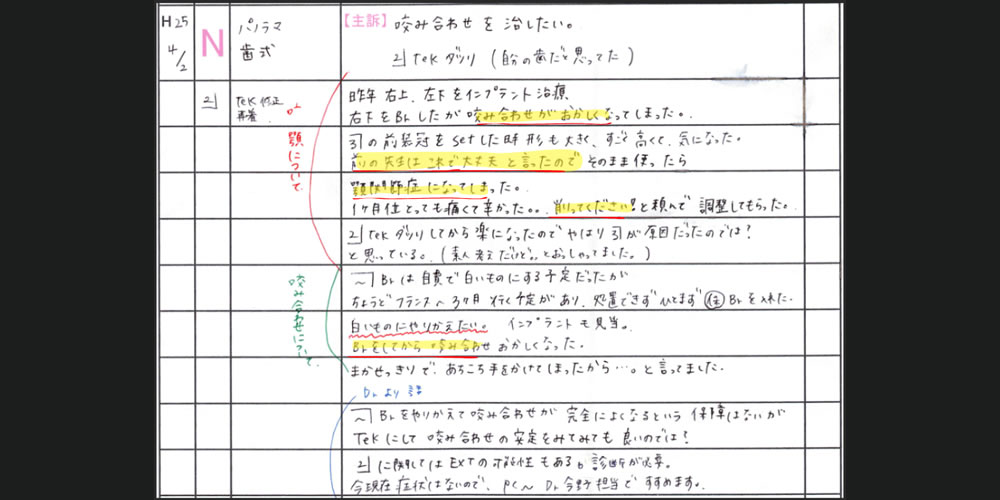 H25 4/2
N
パノラマ
歯式
【主訴】咬み合わせを治したい。
2」tek ダツリ (自分の歯だと思ってた)
2」
tek 修正
再着
顎について
昨年 右上、左下をインプラント治療
右下を Br したが咬み合わせがおかしくなってしまった。
の前装冠を setした時 形も大きく、すごく高くて、気になった。
前の先生はこれで大丈夫と言ったので そのまま使ったら
顎関節症になってしまった。
1ヶ月位とっても痛くて辛かった。。削ってください!と頼んで調整してもらった。
2」tek ダツリしてから楽になったので やはり が原因だったのでは?
と思っている。(素人考えだけど。。とおっしゃってました。)
咬み合わせについて
Br は自費で白いものにする予定だったが
ちょうどフランスへ 3ヶ月 行く予定があり、処置できずひとまず Br を入れた。
白いものにやりかえたい。 インプラントも見当。
Br をしてから 咬み合わせ おかしくなった。
まかせっきりで、あちこち手をかけてしまったから…。と言ってました。
Dr より 話
Br をやりかえて咬み合わせが 完全によくなるという 保障はないが
TeK にして 咬み合わせの安定をみてみても 良いのでは?
2」に関しては EXT の可能性もある。診断が必要。
今現在 症状はないので、PC〜 Dr 今野担当で すすめます。